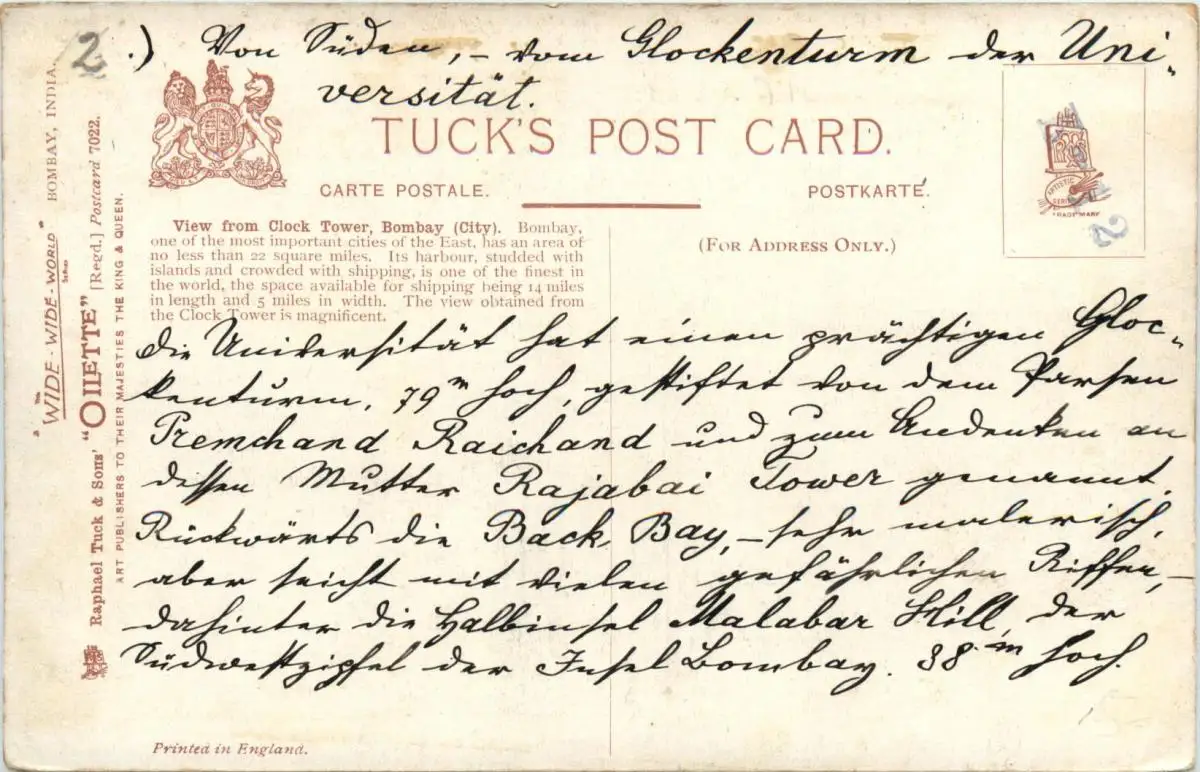 2.) Von Süden, – vom Glockenturm der Uni-
versität.
TUCK'S POST CARD.
CARTE POSTALE.
POSTKARTE.
(FOR ADDRESS ONLY.)
View from Clock Tower, Bombay (City). Bombay,
one of the most important cities of the East, has an area of
no less than 22 square miles. Its harbour, studded with
islands and crowded with shipping, is one of the finest in
the world, the space available for shipping being 14 miles
in length and 5 miles in width. The view obtained from
the Clock Tower is magnificent.
die Universität hat einen prächtigen Gloc-
kenturm, 79 m hoch, gestiftet von dem Parsen
Premchand Raichand und zum Andenken an
dessen Mutter Rajabai Tower genannt.
Rückwärts die Back Bay, – sehr malerisch,
aber seicht mit vielen gefährlichen Riffen, –
dahinter die Halbinsel Malabar Hill, der
Südwestzipfel der Insel Bombay. 38 m hoch.
Printed in England.
"THE WIDE-WIDE-WORLD" SERIES BOMBAY, INDIA.
Raphael Tuck & Sons' "OILETTE" [Regd.] Postcard 7022.
ART PUBLISHERS TO THEIR MAJESTIES THE KING & QUEEN.
ARTISTIC
SERIES
TRADE MARK
2